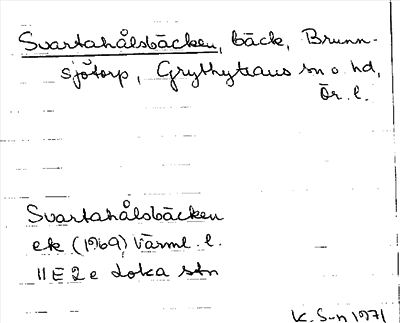 Svartahålsbäcken, bäck, Brunn-
sjötorp, Grythyttans sn o. hd,
Ör. l.
Svartahålsbäcken
ek (1969) Värml. l.
11E 2e Loka stn
K. S-n 1971